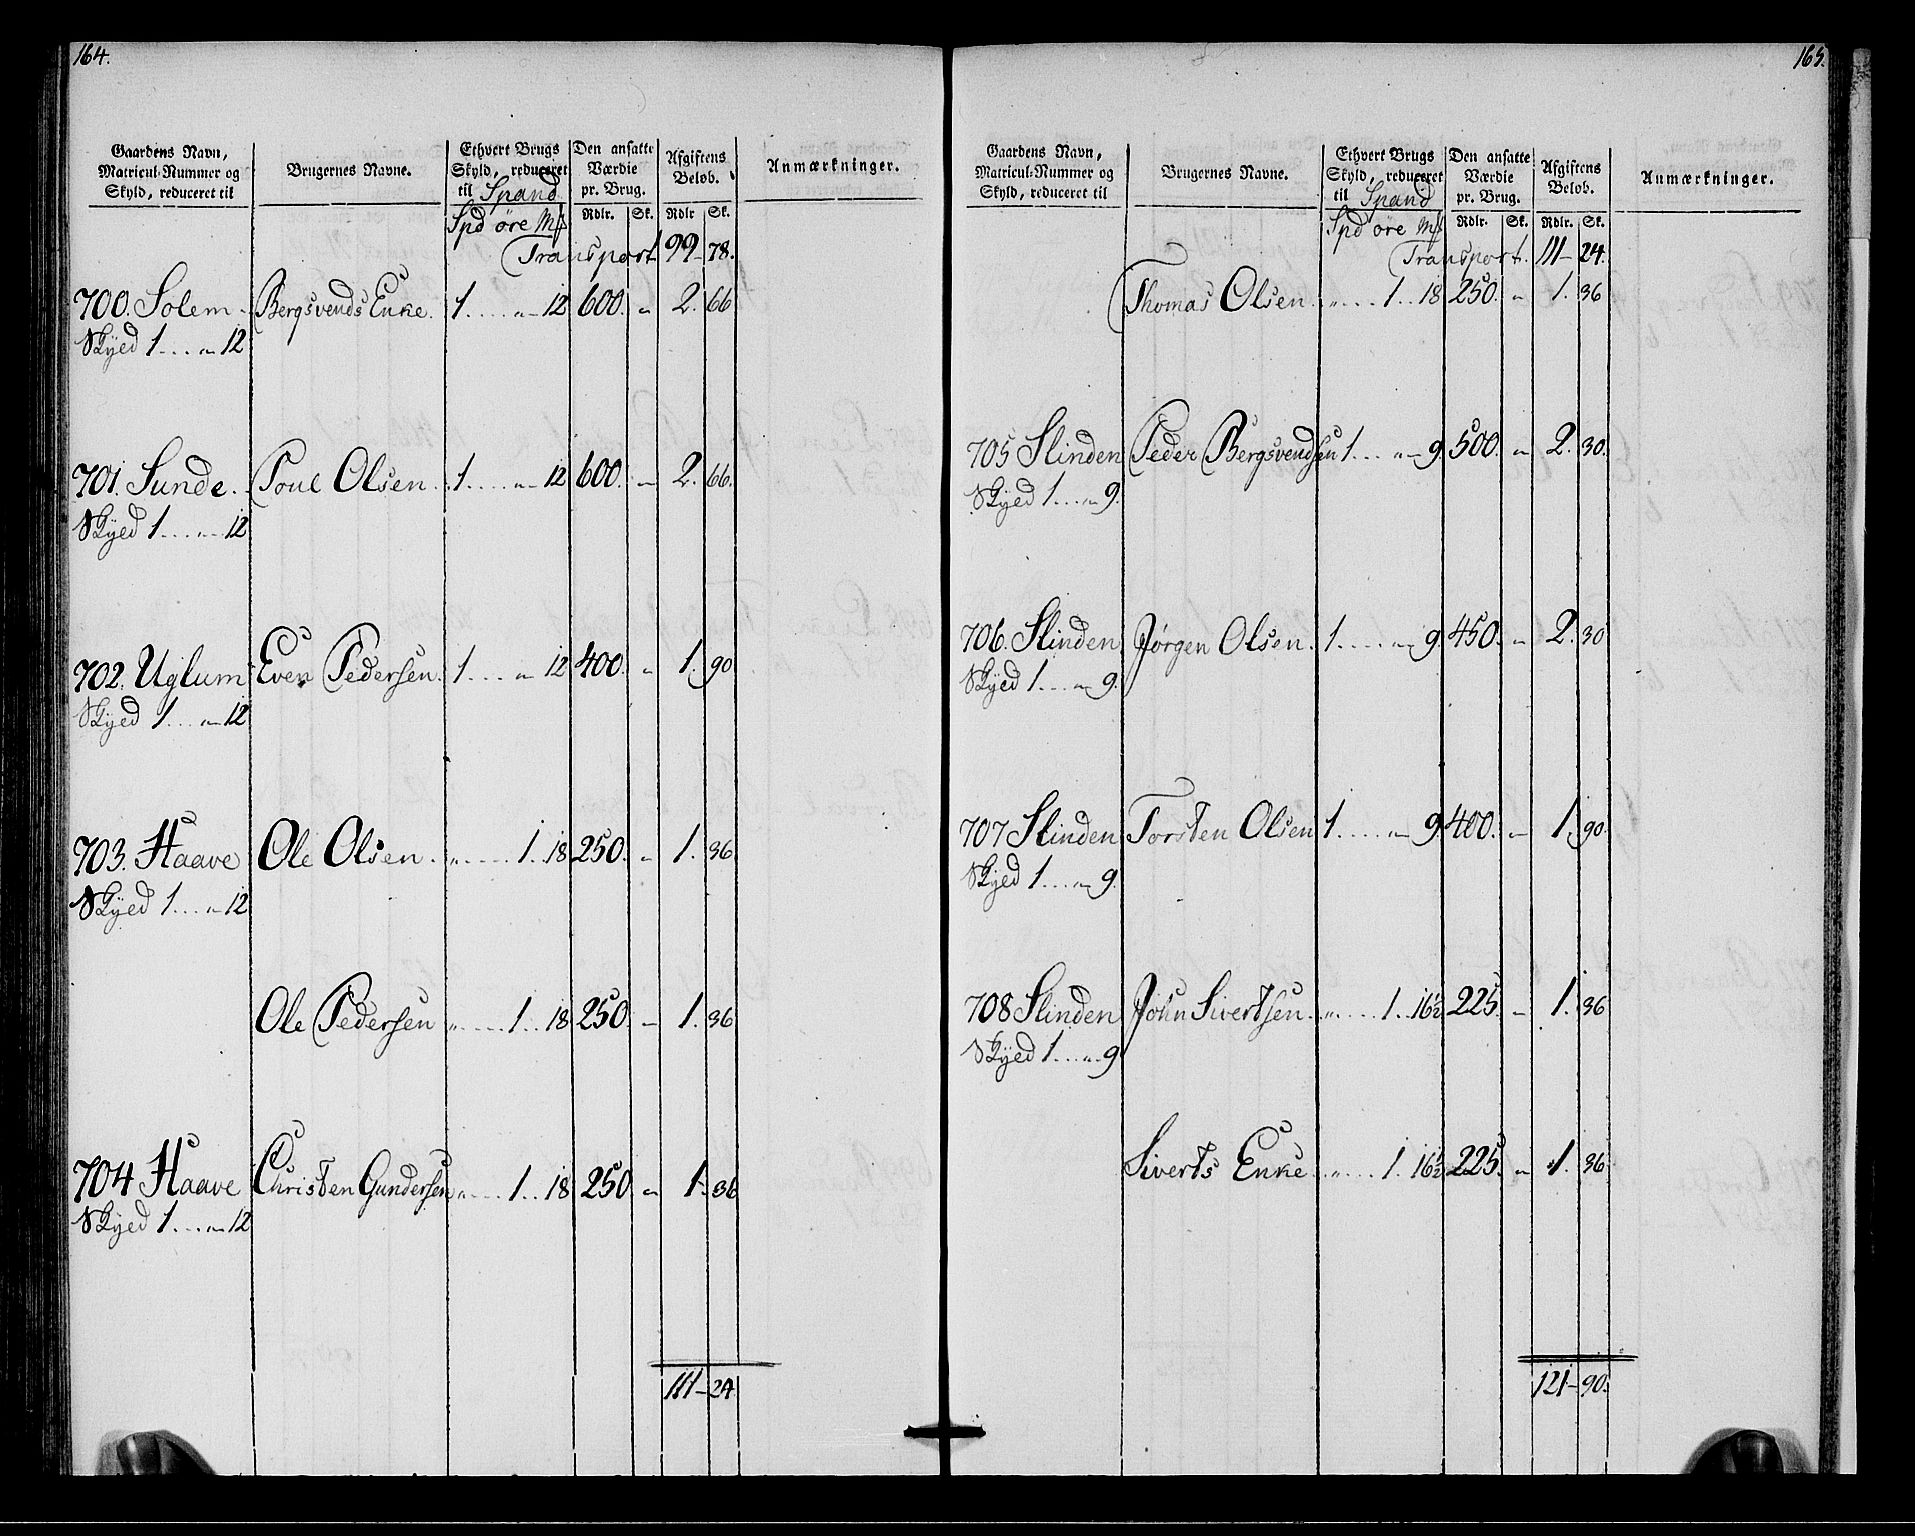 164.
Gaardens Navn, Matricul-Nummer og Skyld, reduceret til
Brugernes Navne.
Ethvert Brugs Skyld, reduceret til Spand
Den ansatte Værdie pr. Brug.
Afgiftens Beløb.
Anmærkninger.
Spd øre Mk Rdlr. Sk. Rdlr Sk.
Transport 99 - 78.
700. Solem - Bergsvends Enke. 1 .... „ - 12 600. „ 2. 66
Skyed 1 ... „ - 12
701. Sunde. Poul Olsen. 1 .... „ - 12 600. - 2. 66.
Skyed 1 .... „ - 12
702. Uglum Even Pedersen. 1 .... „ 12 400. „ 1. 90
Skyed 1 ... „ - 12
703. Haave Ole Olsen. „ .... 1. 18 250. „ 1. 36
Skyed 1 ... „ 12
Ole Pedersen „ .... 1 .. 18 250. - 1. 36
704 Haave Christen Gundersen „ .... 1 .. 18 250 „ 1. 36
Skyed 1 ... „ - 12
111 - 24
165.
Gaardens Navn, Matricul-Nummer og Skyld, reduceret til
Brugernes Navne.
Ethvert Brugs Skyld, reduceret til Spand
Den ansatte Værdie pr. Brug.
Afgiftens Beløb.
Anmærkninger.
Spd øre Mk Rdlr. Sk. Rdlr. Sk.
Transport. 111 - 24.
Thomas Olsen. „ .... 1 .. 18 250. „ 1. 36
705 Slinden Peder Bergsvendsen 1 ... „ - 9 500. „ 2. 30.
Skyed 1 ... „ 9.
706. Slinden Jørgen Olsen. 1 .... „ - 9. 450. „ 2. 30
Skyed 1 ... „ - 9.
707 Slinden Torsten Olsen 1 .... „ - 9 400. - 1. 90.
Skyed 1 ... „ - 9.
708 Slinden John Sivertsen. „ .... 1 .. 16½ 225. - 1. 36
Skyed 1 ... „ 9
Siverts Enke. „ .... 1. 16½ 225. „ 1. 36
121 - 90.